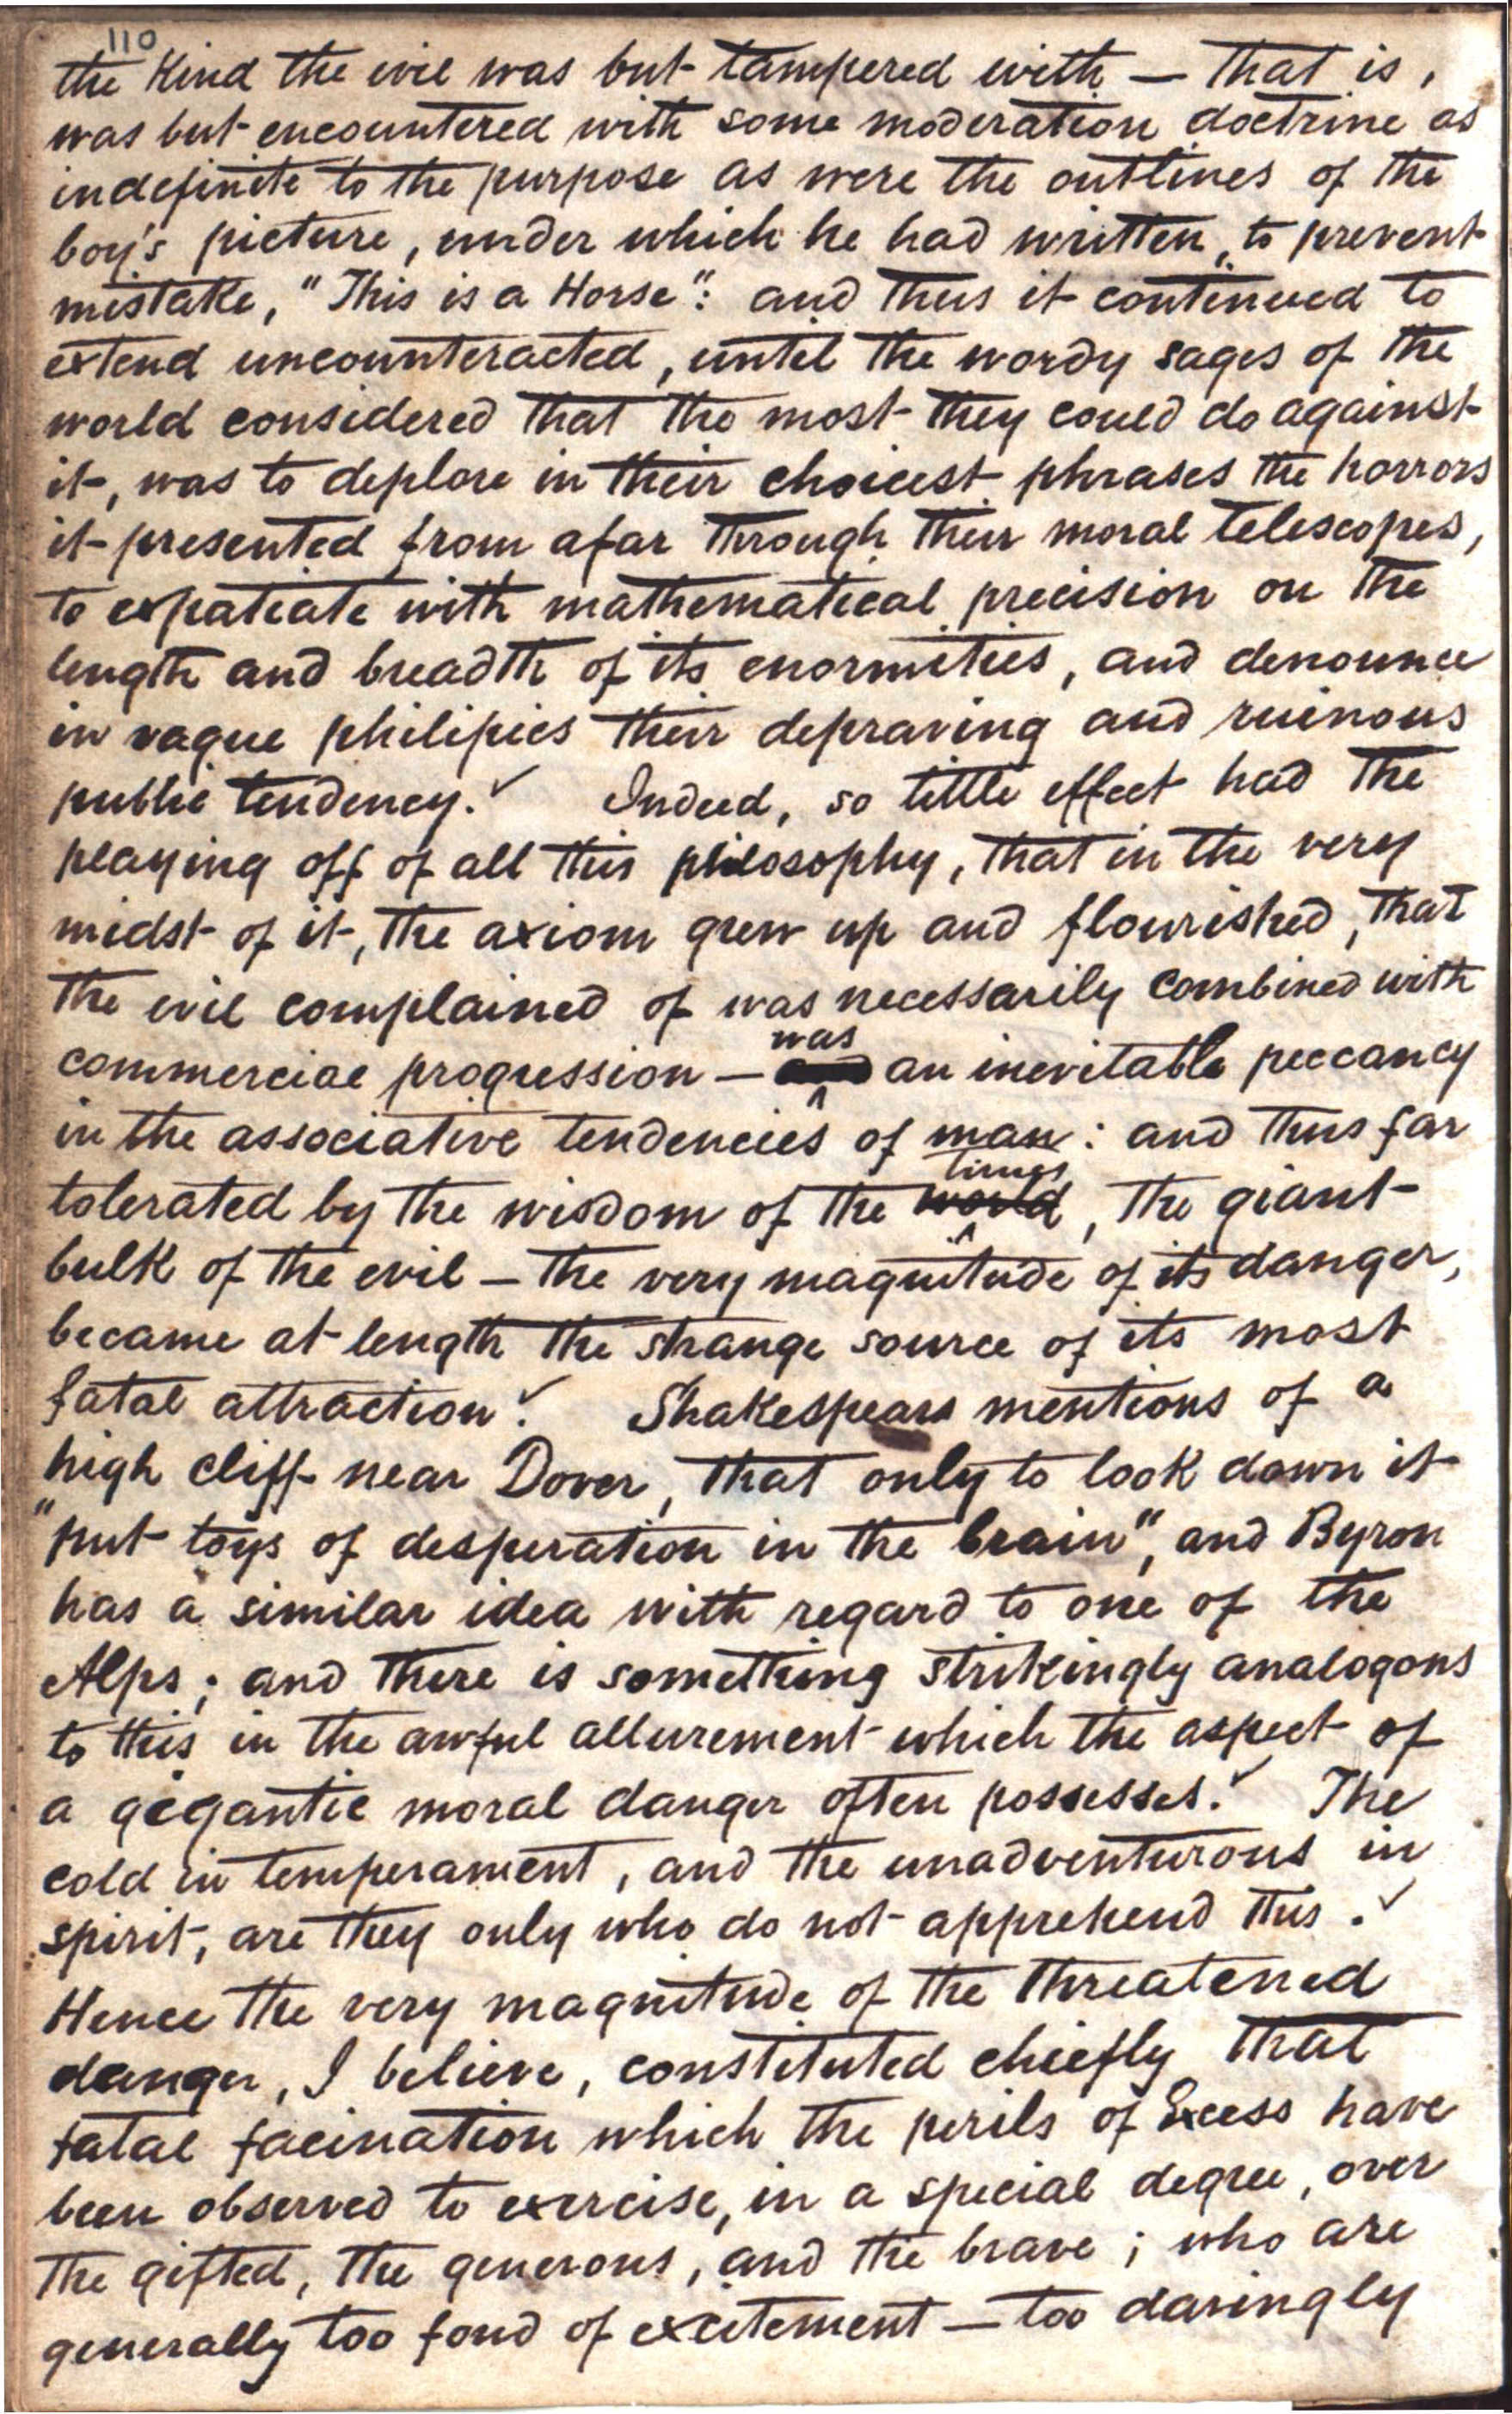 110
the Kind the evil was but tampered with — that is,
was but encountered with some moderation doctrine as
indefinite to the purpose as were the outlines of the
boy's picture, under which he had written, to prevent
mistake, "This is a Horse": and thus it continued to
extend uncounteracted, until the wordy sages of the
world considered that the most they could do against
it, was to deplore in their choicest phrases the horrors
it presented from afar through their moral telescopes,
to expatiate with mathematical precision on the
length and breadth of its enormities, and denounce
in vague philipics their depraving and ruinous
public tendency. Indeed, so little effect had the
playing off of all this philosophy, that in the very
midst of it, the axiom grew up and flourished, that
the evil complained of was necessarily combined with
was
commercial progression — and an inevitable peccancy
in the associative tendencies of man: and thus far
times
tolerated by the wisdom of the world, the giant
bulk of the evil — the very magnitude of its danger,
became at length the strange source of its most
fatal attraction. Shakespeare mentions of a
high cliff near Dover, that only to look down it
"put toys of desperation in the brain", and Byron
has a similar idea with regard to one of the
Alps; and there is something strikingly analogous
to this in the awful allurement which the aspect of
a gigantic moral danger often possesses. The
cold in temperament, and the unadventurous in
spirit, are they only who do not apprehend this.
Hence the very magnitude of the threatened
danger, I believe, constituted chiefly that
fatal facination which the perils of Excess have
been observed to exercise, in a special degree, over
the gifted, the generous, and the brave; who are
generally too fond of excitement — too daringly